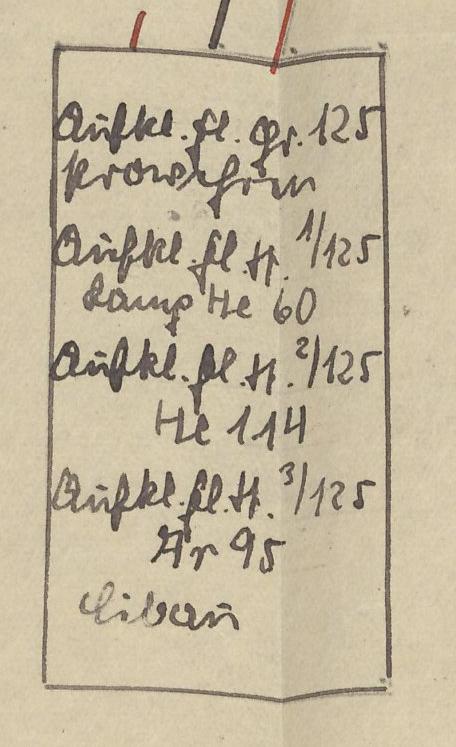 Aufkl.fl.Gr. 125
Prowehren
Aufkl.fl.St. 1/125
Kamp He 60
Aufkl.fl.St. 2/125
He 114
Aufkl.fl.St. 3/125
Ar 95
Libau